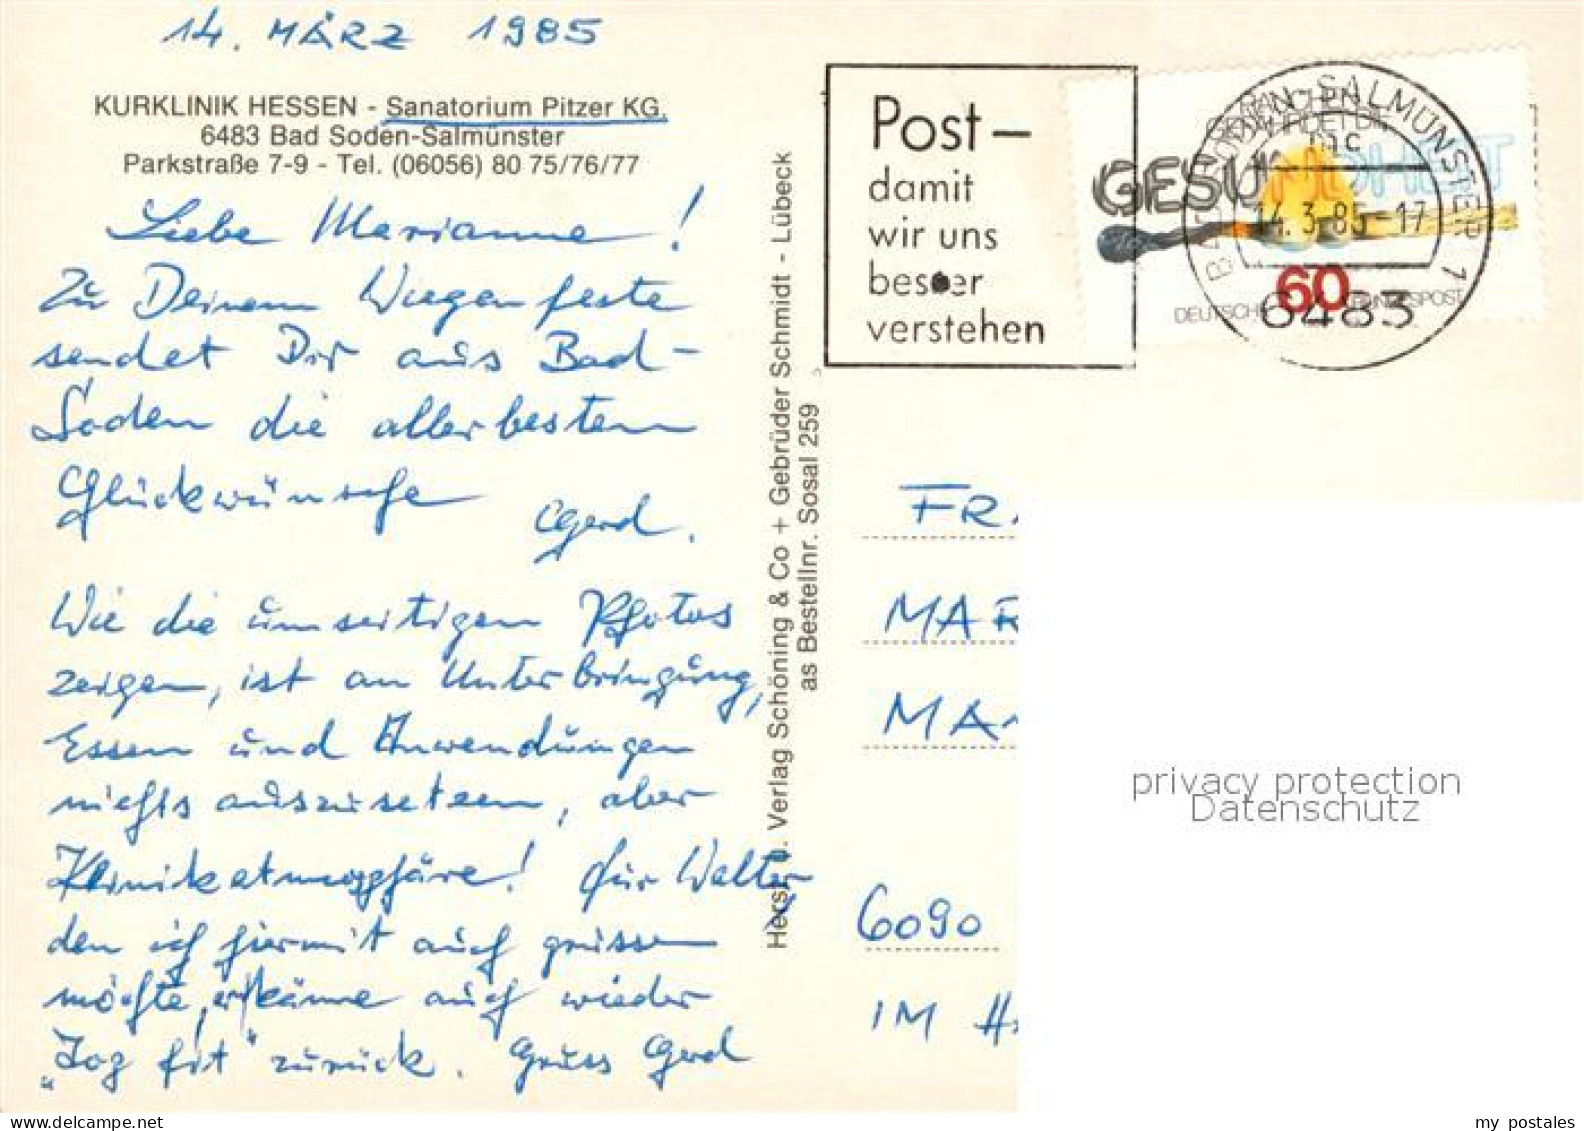 14. MÄRZ 1985
KURKLINIK HESSEN - Sanatorium Pitzer KG.
6483 Bad Soden-Salmünster
Parkstraße 7-9 - Tel. (06056) 80 75/76/77
Liebe Marianne!
Zu Deinem Wiegenfeste
sendet Dir aus Bad-
Soden die allerbesten
Glückwünsche
Gerd.
Wie die umseitigen Photos
zeigen, ist an Unterbringung,
Essen und Anwendungen
nichts auszusetzen, aber
Klinikatmosphäre! für Walter
den ich hiermit auch grüssen
möchte, er käme auch wieder
„Top fit" zurück. Gruss Gerd
Herst. u. Verlag Schöning & Co + Gebrüder Schmidt - Lübeck
as Bestellnr. Sosal 259
Post-
damit
wir uns
besser
verstehen
GESUNDHEIT
60
DEUTSCHE BUNDESPOST
BAD SODEN-SALMÜNSTER 1
mc
14.3.85-17
6483
FR
MAR
MA
6090
IM H
privacy protection
Datenschutz
my postales